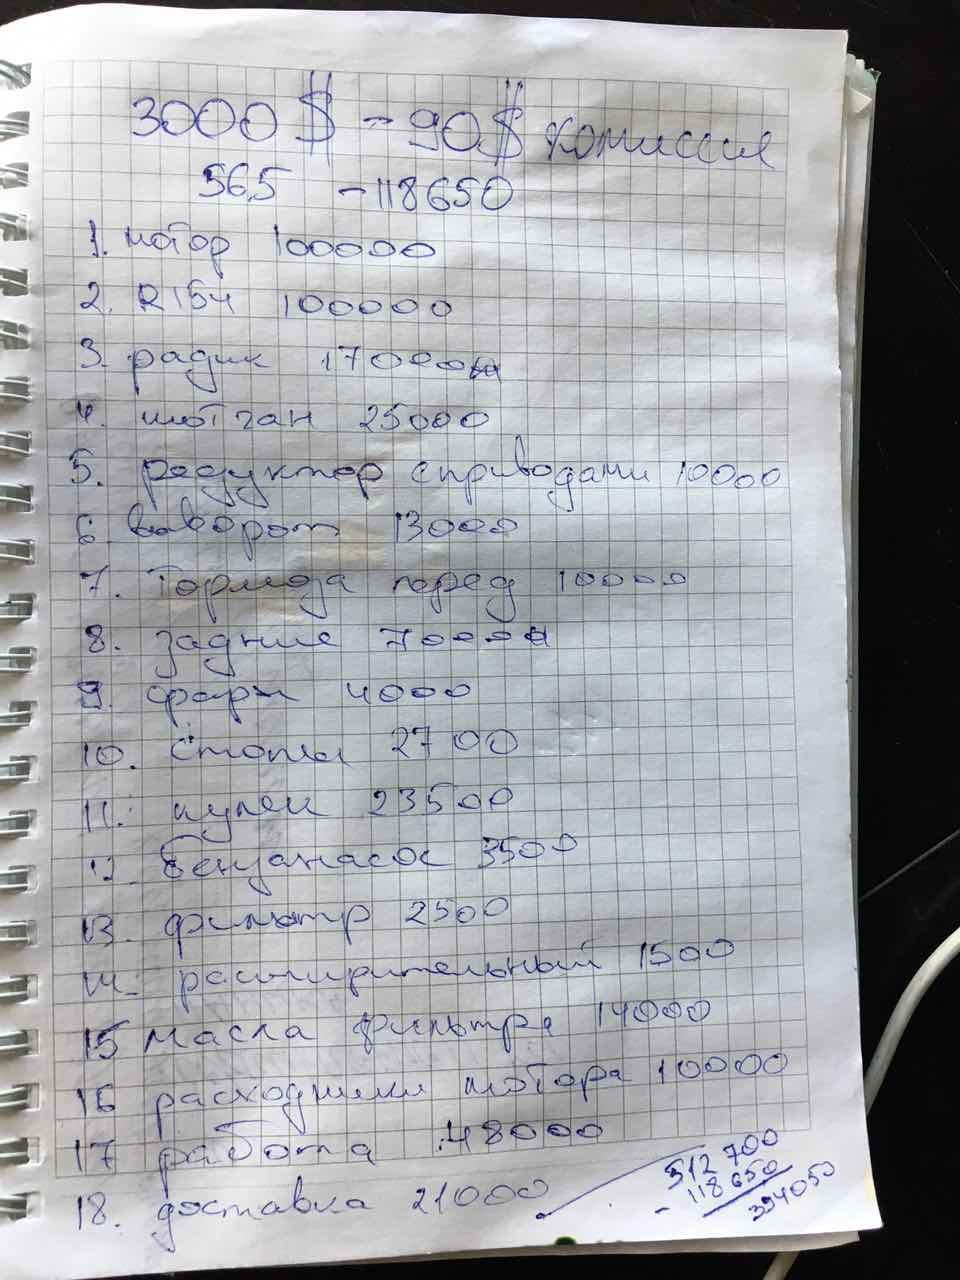 3000 $ - 90 $ комиссия
56.5 - 118650
1. мотор 100000
2. R154 100000
3. радик 17000
4. шотган 25000
5. редуктор с приводами 10000
6 выворот 13000
7. Тормоза перед 10000
8. задние 7000
9. фары 4000
10. стопы 2700
11. 23500
12 бензанасос 3500
13. фильтр 2500
14. расширительный 1500
15 масла фильтра 14000
16 расходники мотора 10000
17 работа 48000
18. доставка 21000
512 700
- 118 650
394050